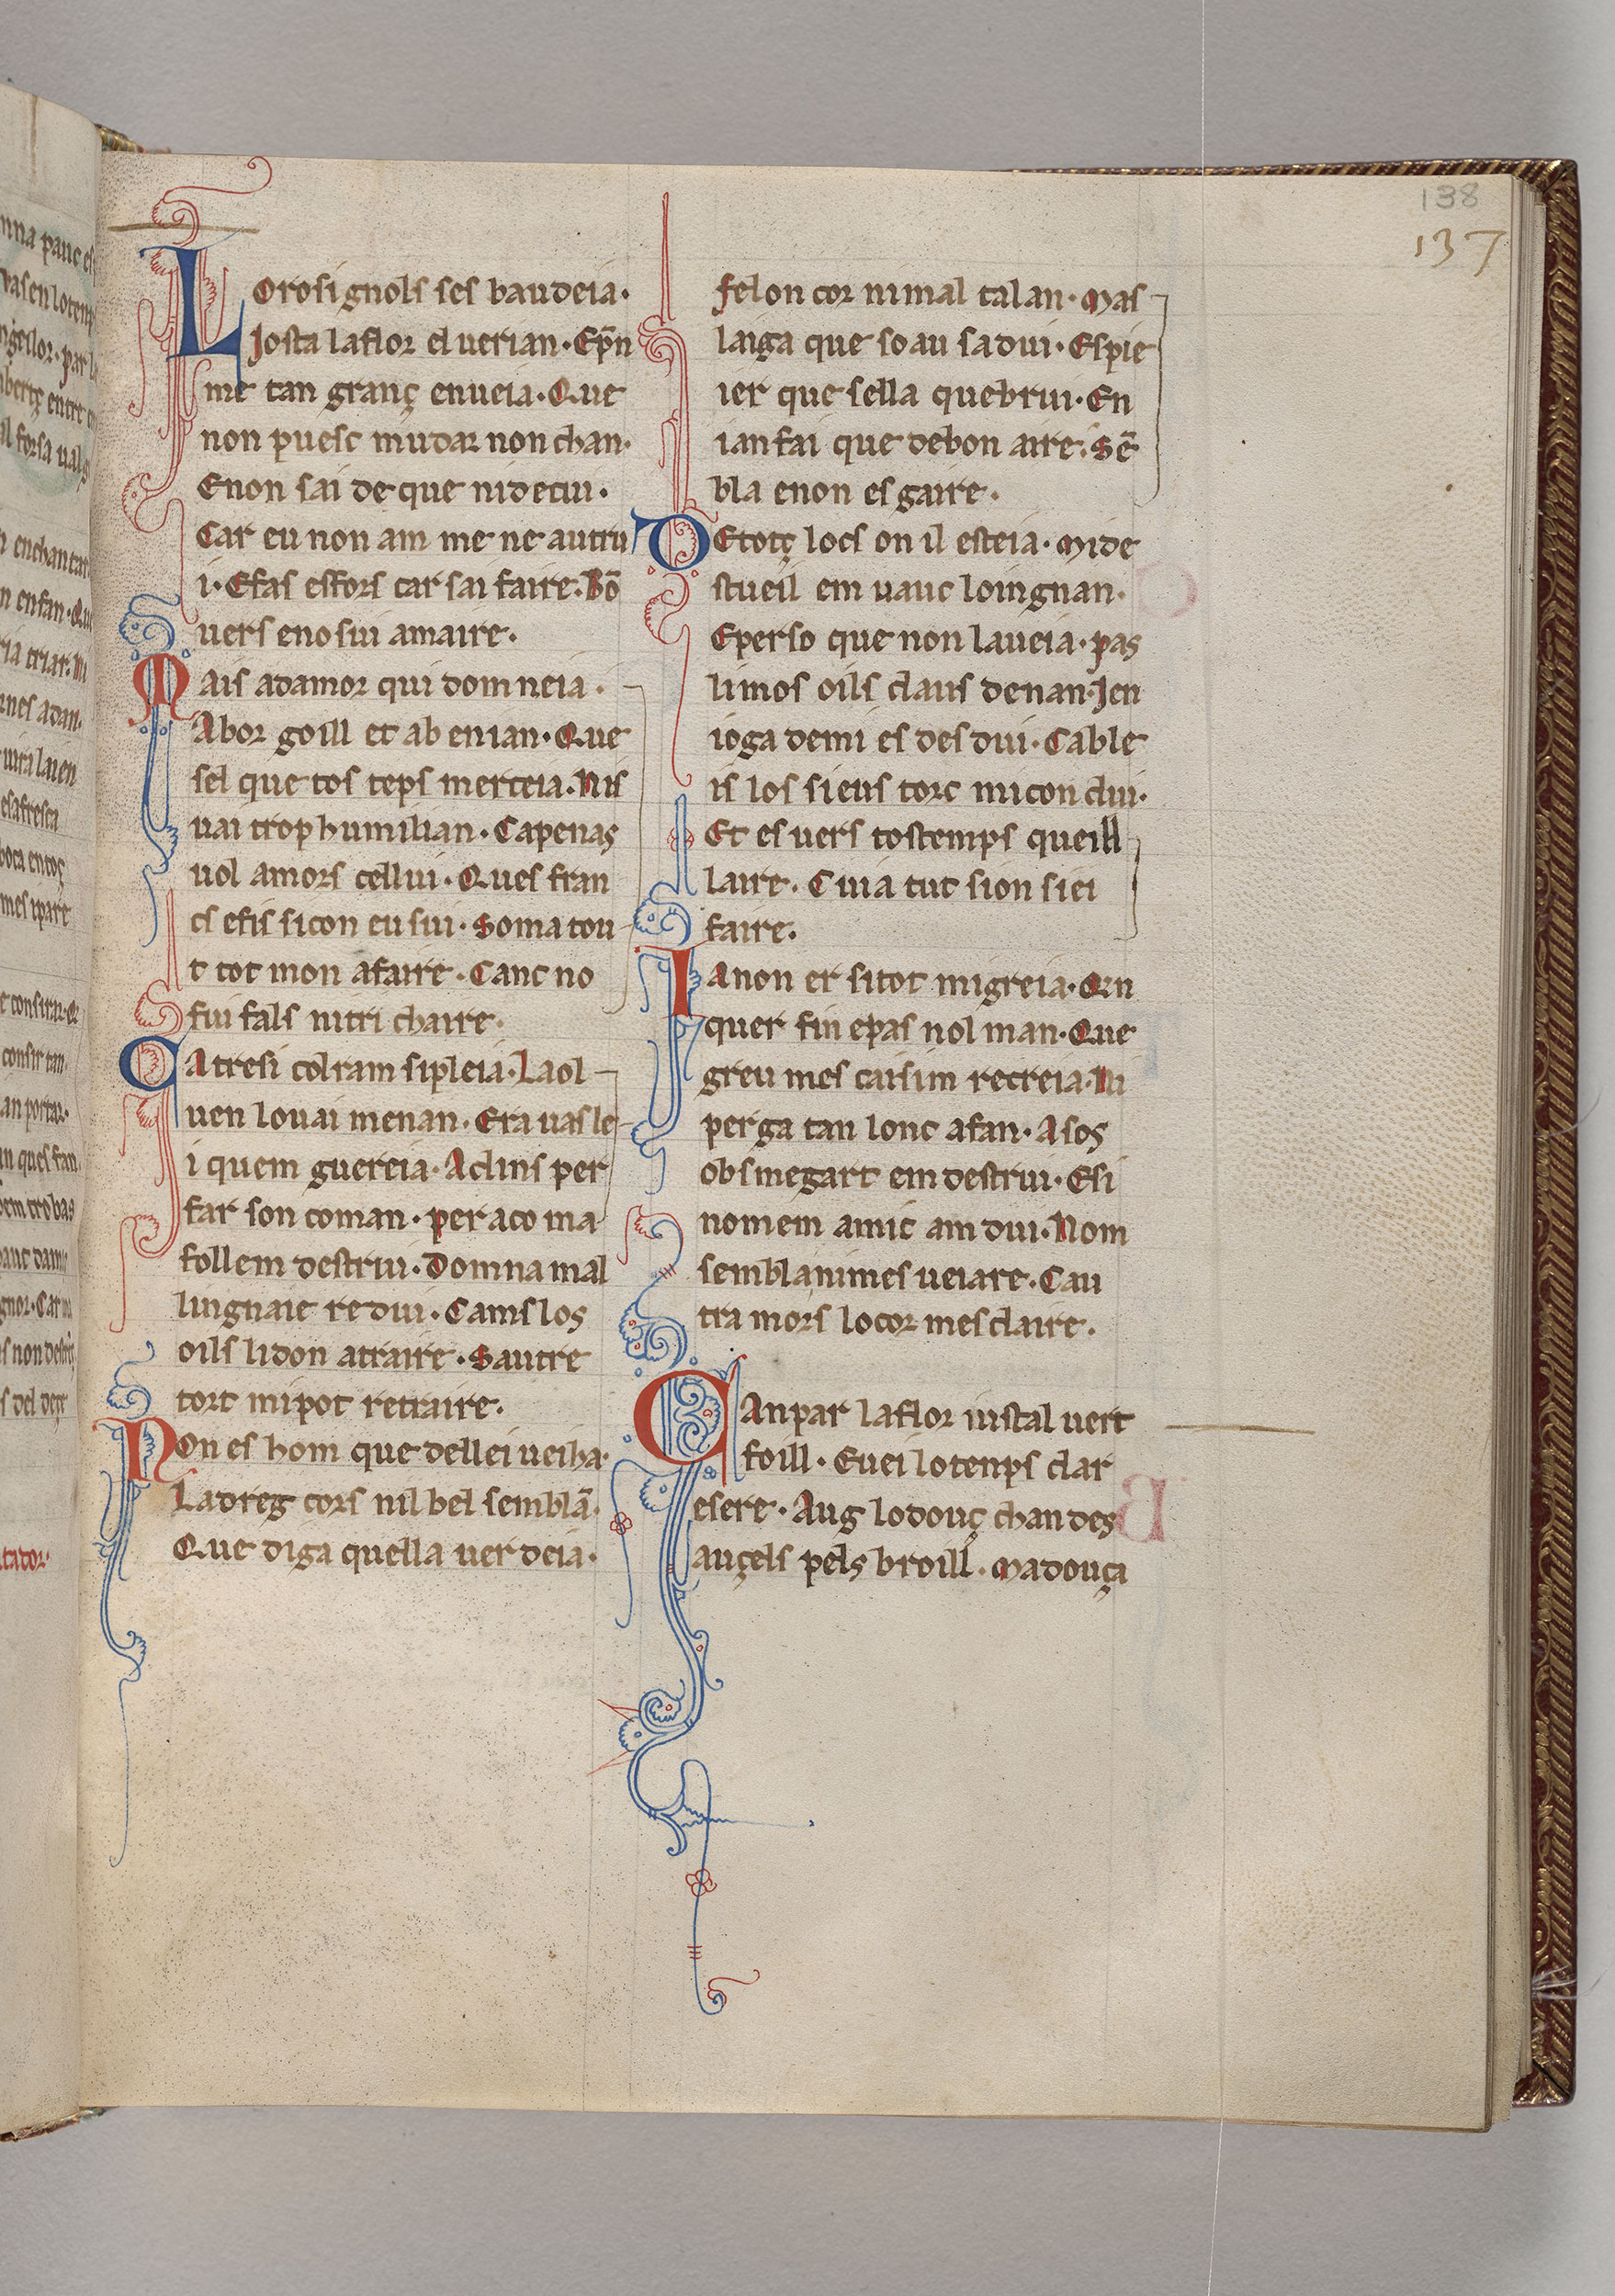 138
137
Lorosignols ses baudeia·
Josta laflor el uerian· Ep̄n
me tan granç enueia· Que
non puesc mudar non chan·
Enon sai de que nidecui·
Car eu non am me ne autru
i· Efas esfors car sai faire· Bō
uers enosui amaire·
Mais adamor qui domneia·
Abor goill et ab enian· Que
sel que tos teps merceia· Nis
uai trop humilian· Capenas
uol amors cellui· Ques fran
cs efis sicon eu sui· Soma tou
t tot mon afaire· Canc no
fui fals nitrichaire·
Catresi colram sipleia· Laol
uen louai menan· Era uas le
i quem guereia· Aclins per
far son coman· per aco ma
follem destrui· Domna mal
lingnaie redui· Cams los
oils lidon atraire· Sautre
tort mipot retraire·
Non es hom que dellei ueiha·
Ladreg cors nil bel semblā·
Que diga quella uer deia·
felon cor nimal talan· Mas
laiga que soau sadui· Espie
ier que sella quebrui· En
ianfai que debon aire· Sē
bla enon es gaire·
Detotç locs on il esteia· Mide
stueil em uauc loingnan·
Eperso que non laueia· pas
limos oils claus denan· Jen
ioga demi es des dui· Cable
is los sieus torc micon clui·
Et es uers tostemps queill
laire· Cuia tut sion siei
faire·
Ianon er sitot migreia· Qun
quer fin epas nol man· Que
greu mes caisim recreia· Ni
perga tan lonc afan· Asos
obs megart em destrui· Esi
nomem amic am dui· Nom
semblanimes ueiare· Cau
tra mors locor mesclaire·
Canpar laflor iustal uert
foill· Euei lotemps clar
esere· Aug lodouç chan des
auçels pels broill· Madouça